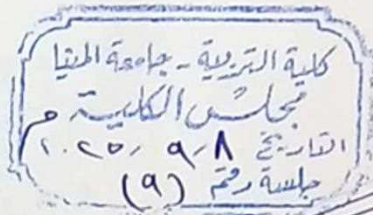 كلية التربية - جامعة المنيا
مجلس الكلية
التاريخ ٨ / ٩ / ٢٠٢٥ م
جلسة رقم (٩)